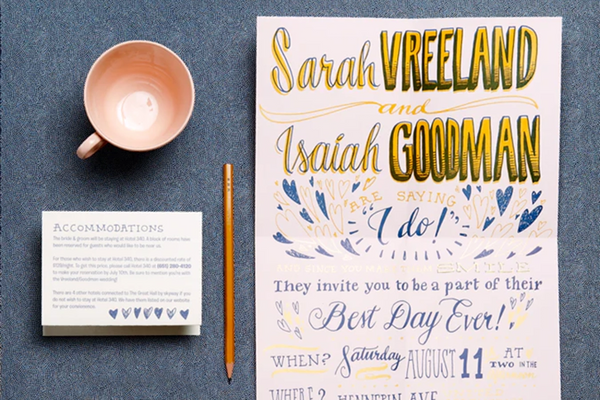 Sarah VREELAND
and
Isaiah GOODMAN
ARE SAYING
"I do!"
SMILE
They invite you to be a part of their
Best Day Ever!
WHEN? Saturday AUGUST 11 AT TWO IN THE
WHERE? HENNEPIN AVE
ACCOMMODATIONS
The bride & groom will be staying at Hotel 340. A block of rooms have
been reserved for guests who would like to be near us.
For those who wish to stay at Hotel 340, there is a discounted rate of
To get this price, please call Hotel 340 at (651) 280-4120
to make your reservation by July 10th. Be sure to mention you're with
the Vreeland/Goodman wedding!
There are 4 other hotels connected to The Great Hall by skyway if you
do not wish to stay at Hotel 340. We have them listed on our website
for your convenience.